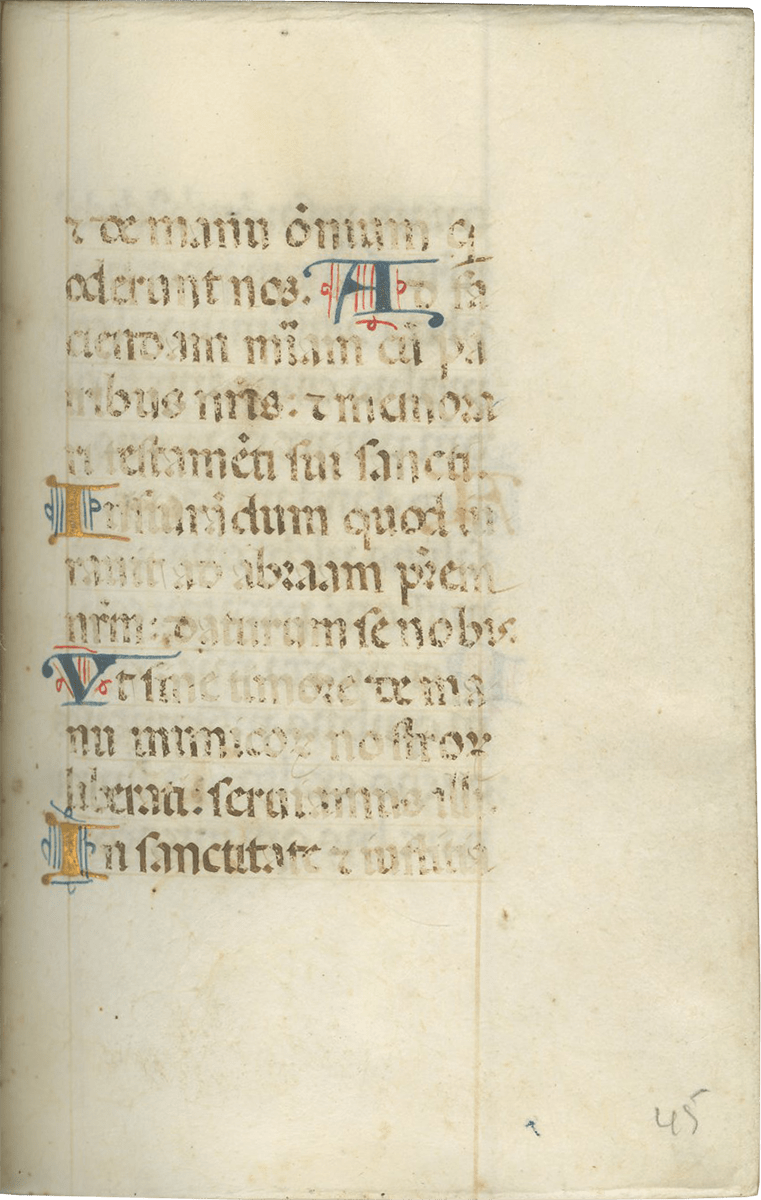 ⁊ de manu om̄nium q̄
oderunt nos. Ad fa
ciendam miam cū pa
tribus nr̄is: ⁊ memora
ri testamēti sui sancti.
Iusiurandum quod iu
rauit ad abraam pr̄em
nr̄m: daturum se nobis.
Vt sine timore de ma
nu inimicoꝝ nostroꝝ
liberati: seruiamus illi.
In sanctitate ⁊ iusticia
45